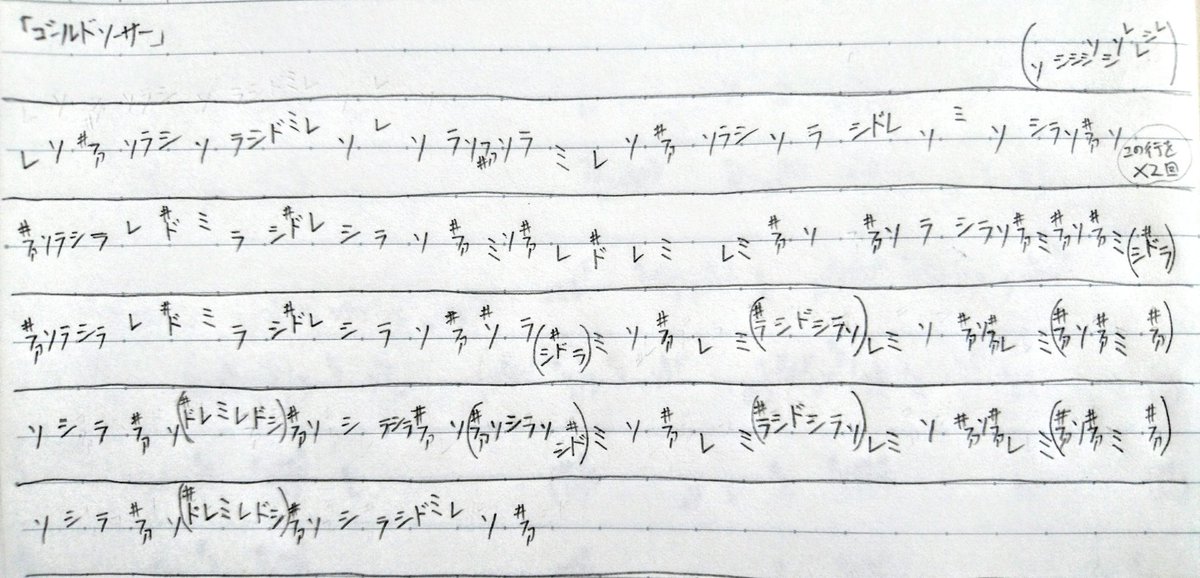 「ゴールドソーサー」
(ソシシシソシソレレシレ)
レソ#ファソラシソラシドミレソレソラソ#ファソラミレソ#ファソラシソラシドレソミソシラソ#ファソ
この行を×2回
#ファソラシラレ#ドミラシ#ドレシラソ#ファミソ#ファレ#ドレミレミ#ファソ#ファソラシラソ#ファミ#ファソ#ファミ(シ#ドラ)
#ファソラシラレ#ドミラシ#ドレシラソ#ファ#ソラ(シ#ドラ)ミソ#ファレミ(#ラシドシラソ)レミソ#ファソ#ファレミ(#ファソ#ファミ#ファ)
ソシラ#ファソ(#ドレミレドシ)#ファソシラシラ#ファソ(#ファソシラソシ#ド)ミソ#ファレミ(#ラシドシラソ)レミソ#ファソ#ファレミ(#ファソ#ファミ#ファ)
ソシラ#ファソ(#ドレミレドシ)#ファソシラシドミレソ#ファ